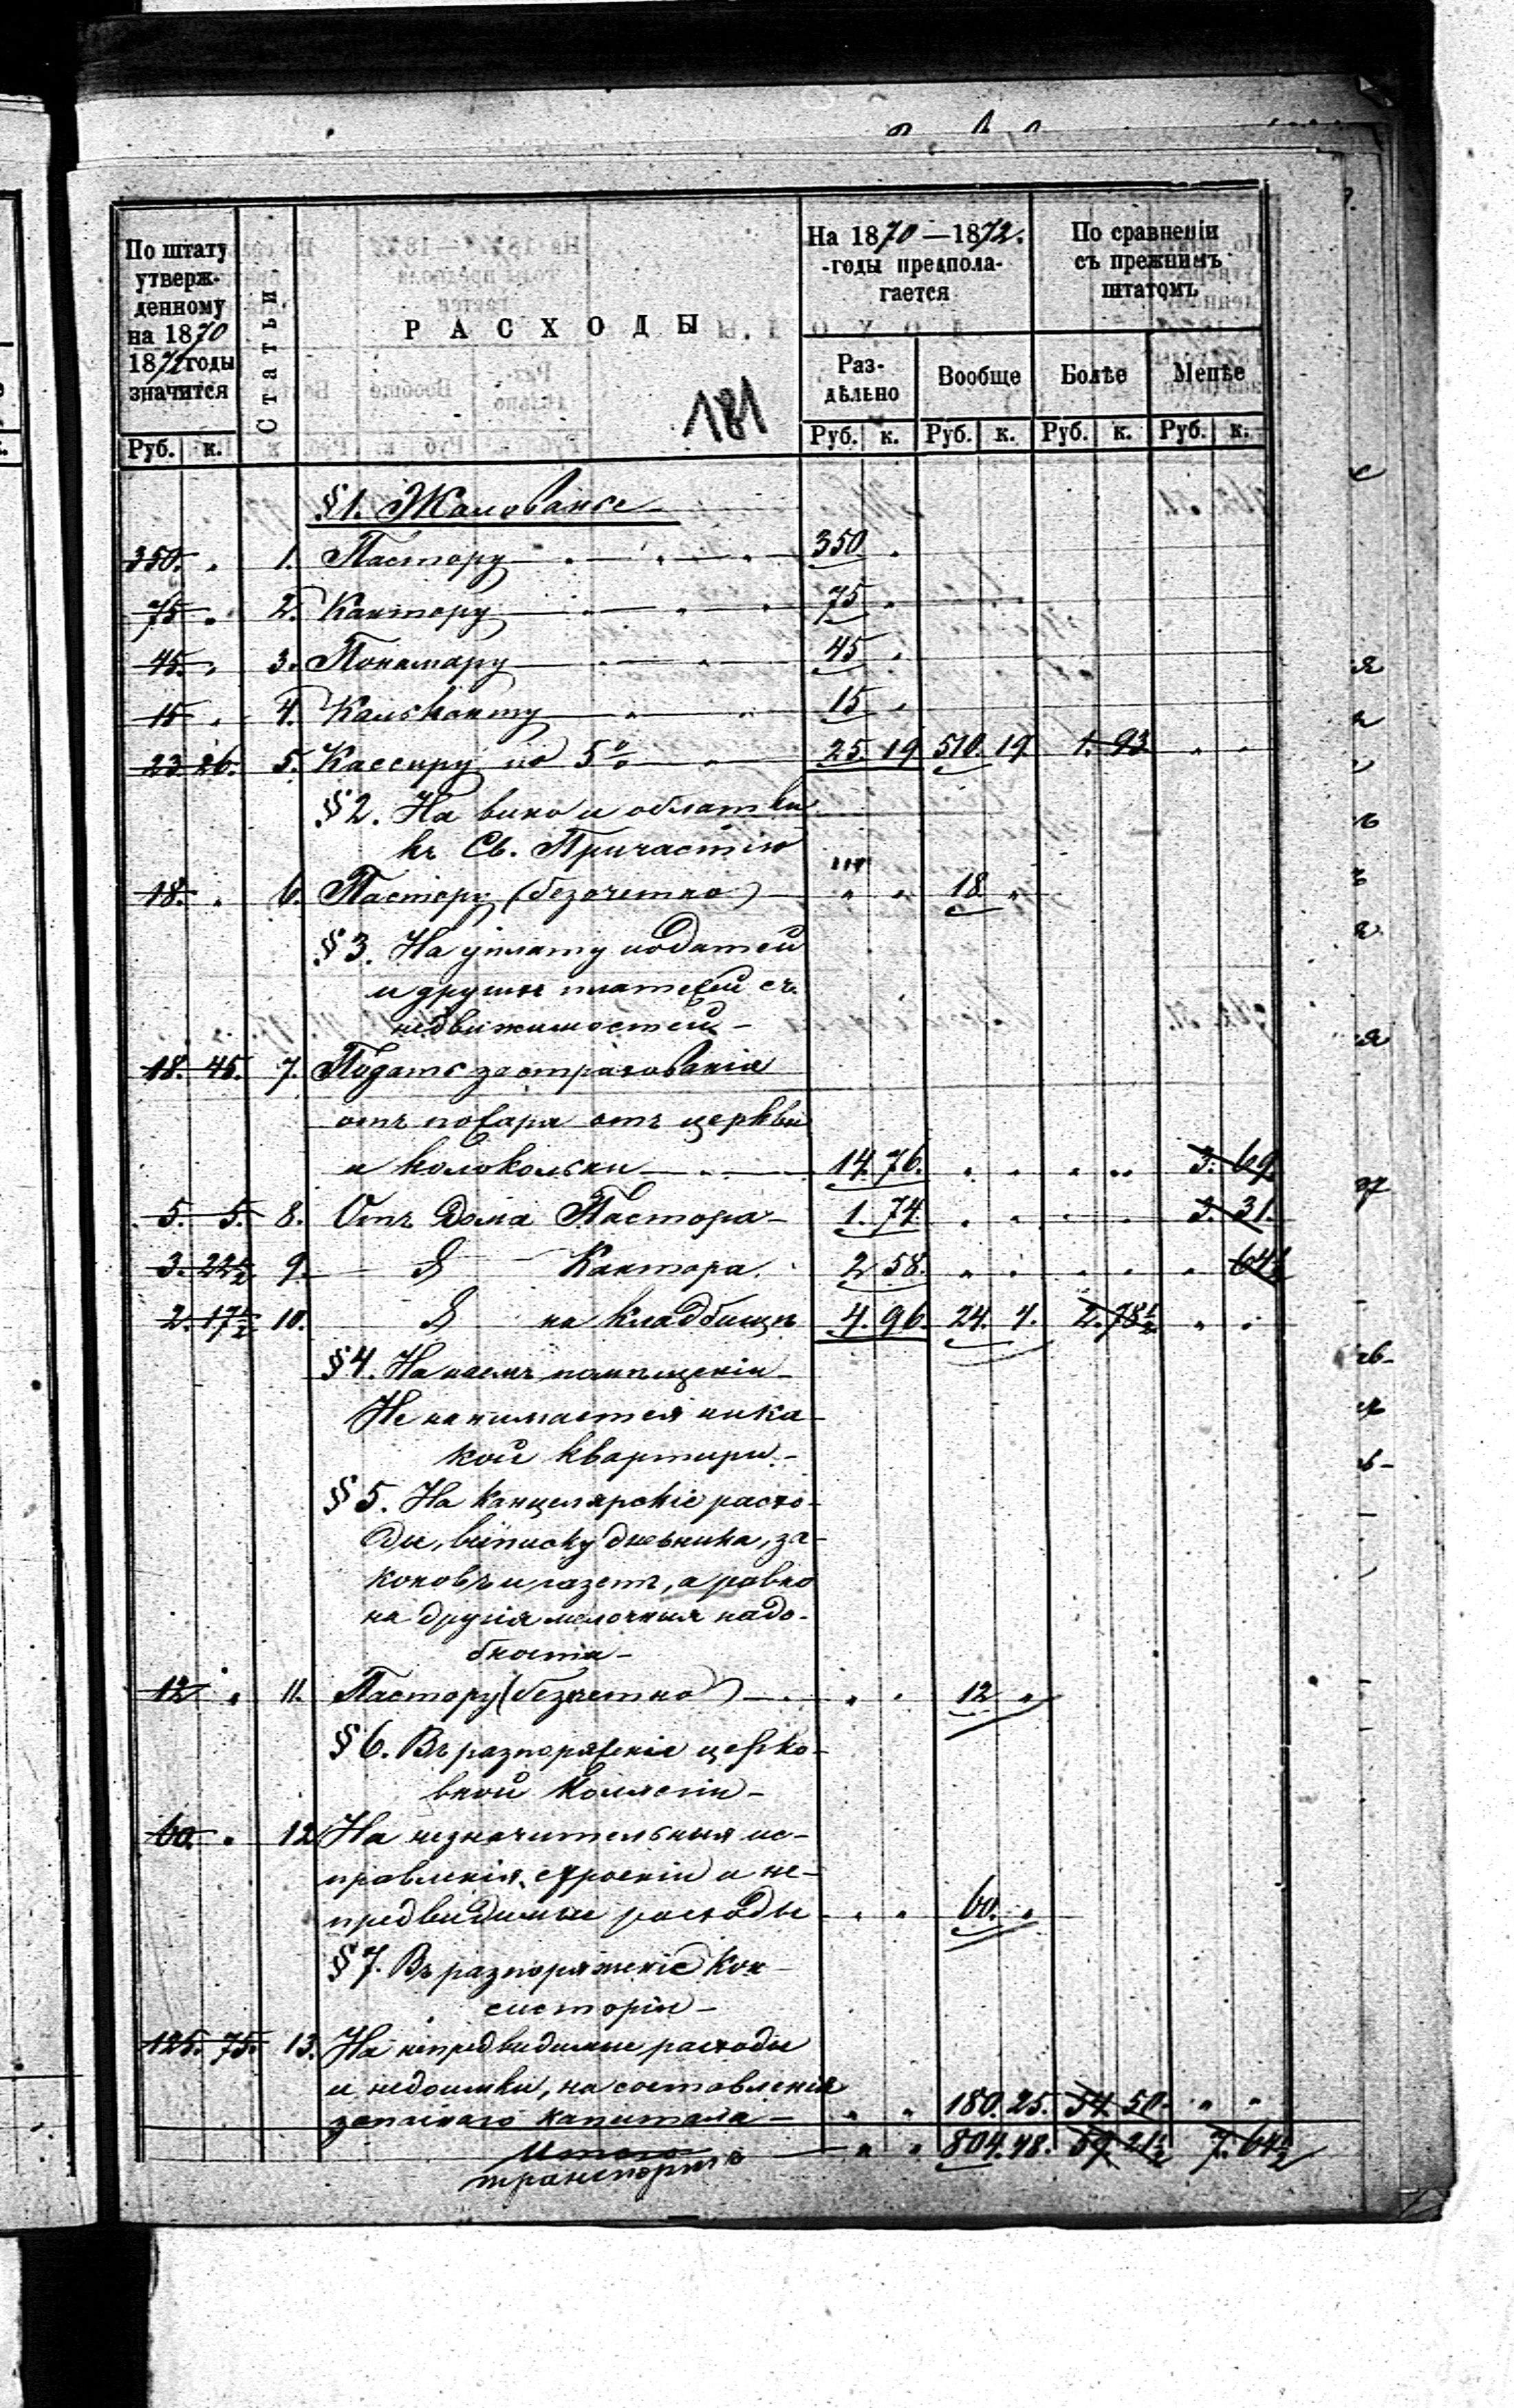 По штату
утверж-
денному
на 1870
1872 годы
значится
Статьи
РАСХОДЫ
На 1870—1872.
годы предпола-
гается
По сравненіи
съ прежнимъ
штатомъ
Раз-
дѣльно
Вообще
Болѣе
Менѣе
181
Руб. к. Руб. к. Руб. к. Руб. к. Руб. к.
§ 1. Жалованье
350. „ 1. Пастору 350 „
75 „ 2. Кантору 75 „
45. „ 3. Понамару 45 „
15 „ 4. Кальканту 15 „
23 26. 5. Кассиру по 5% 25. 19 510. 19 1. 93 „ „
§ 2. На вино и облатки
къ Св. Причастію
18. „ 6. Пастору (безочетно) „ „ 18 „
§ 3. На уплату податей
и другихъ платежей съ
недвижимостей
18. 45. 7. Подать застрахованія
отъ пожара отъ церкви
и колокольни 14. 76. „ „ „ „ 3. 69
5. 5. 8. Отъ дома Пастора 1. 74. „ „ „ „ 3. 31.
3. 22½ 9. Кантора. 2 58. „ „ „ „ „ 64½
2. 17½ 10. на кладбищѣ 4. 96. 24. 4. 2. 78½ „ „
§ 4. На наемъ помѣщеніи
Не нанимается ника-
кой квартиры.
§ 5. На канцелярскіе расхо-
ды, выписку дневника, за-
коновъ и газетъ, а равно
на другія мелочныя надо-
бности
12 „ 11. Пастору (безочетно) „ „ 12 „
§ 6. Въ разпоряженіе церко-
вной Коллегіи
60. „ 12 На незначительныя ис-
правленія строеніи и не-
предвидимые расходы „ „ 60. „
§ 7. Въ разпоряженіе Кон-
систоріи
125. 75. 13. На непредвидимые расходы
и недоимки, на составленія
запаснаго капитала „ „ 180. 25. 54 50. „ „
Итого „ „ 804. 48. 59 21½ 7. 64½
транспортъ